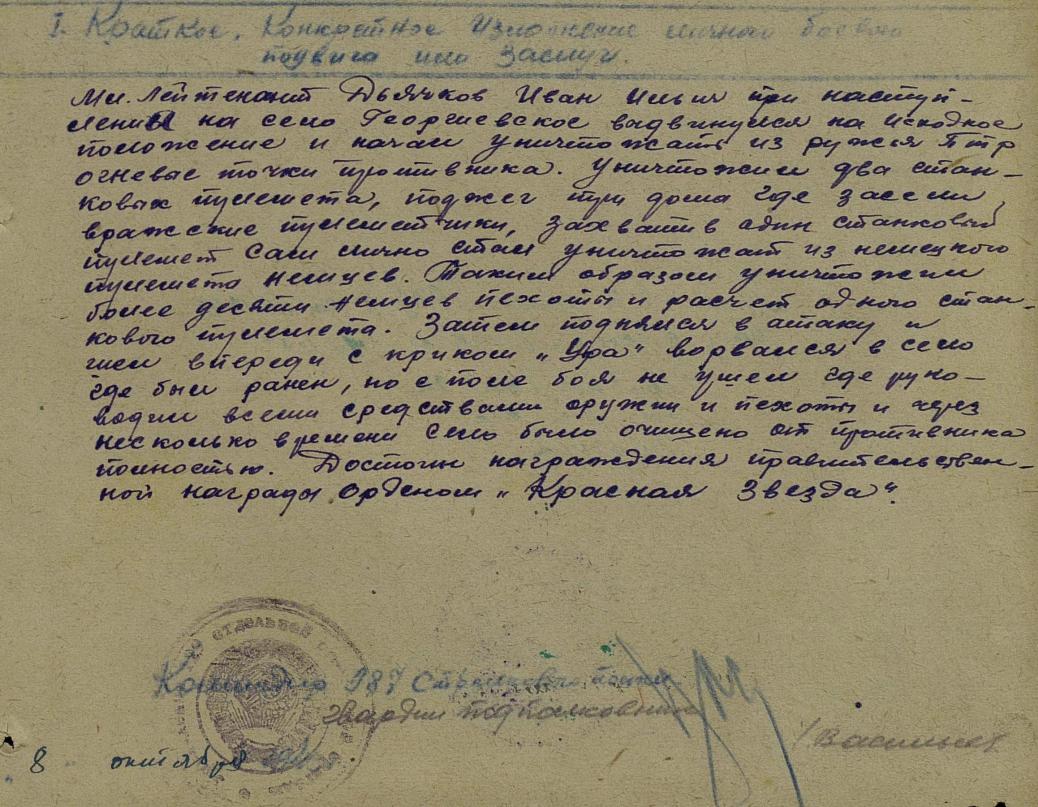 I. Краткое, Конкретное изложение личного боевого
подвига или заслуг.
Мл. Лейтенант Дьячков Иван Ильич при наступ-
лении на село Георгиевское выдвинулся на исходное
положение и начал уничтожать из ружья Птр
огневые точки противника. Уничтожил два стан-
ковых пулемета, поджег три дома где засели
вражеские пулеметчики, захватив один станковый
пулемет сам лично стал уничтожат из немецкого
пулемета немцев. Таким образом уничтожил
более десяти немцев пехоты и расчет одного стан-
кового пулемета. Затем поднялся в атаку и
шел впереди с криком „Ура" ворвался в село
где был ранен, но с поле боя не ушел где руко-
водил всеми средствами оружии и пехоты и через
несколько времени село было очищено от противника
полностью. Достоин награждения правительствен-
ной награды Орденом „Красная Звезда".
Командир 987 Стрелкового полка
гвардии подполковник
/Васильев
8 октября